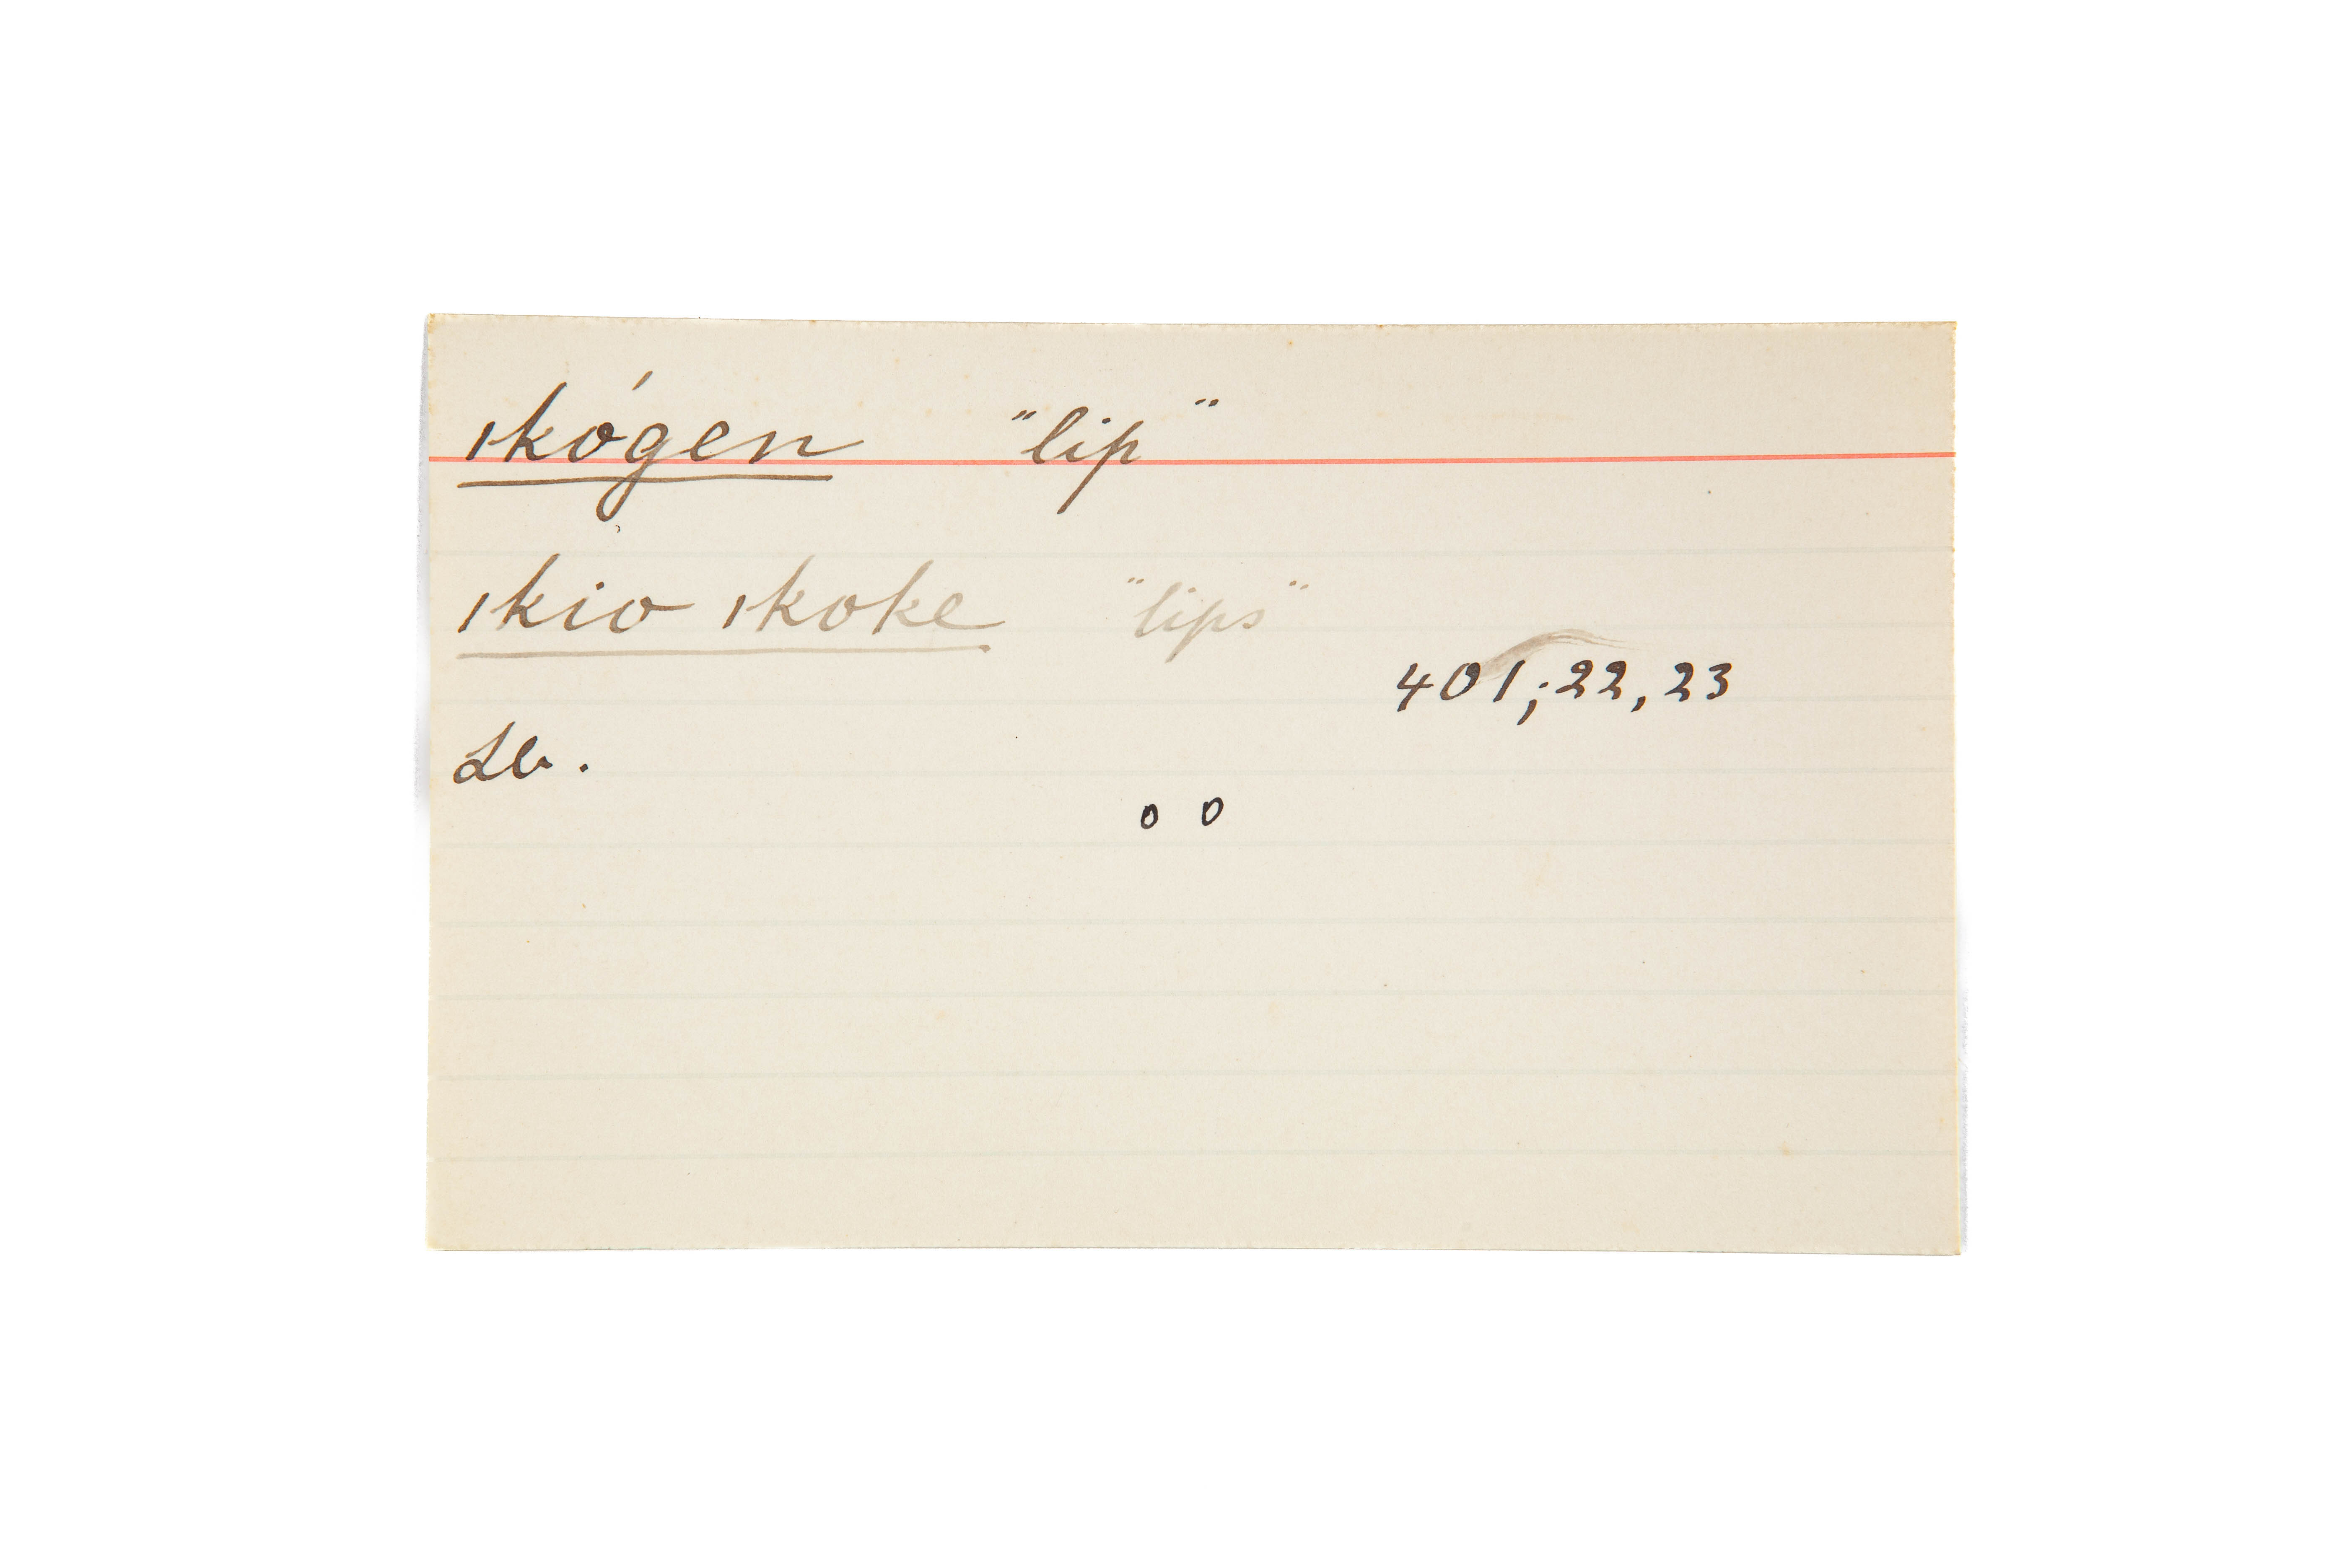 ıkógen "lip"
ıkio ıkoke "lips"
401;22,23
Lb.
o o